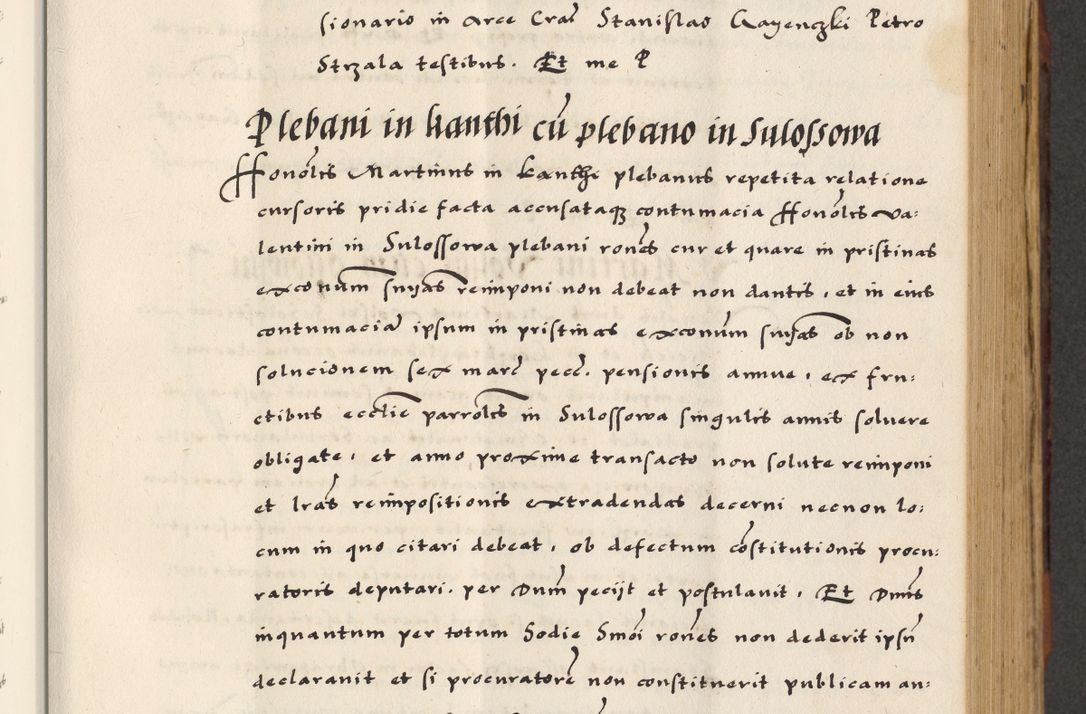 sionario in Arce Crac Stanislao Gayenczki Petro
Strzala testibus. Et me P
Plebani in kanthi cū plebano in Sulossowa
Honólis Martinus in kanthi plebanus repetita relatione
cursoris pridie facta accusataqꝫ contumacia Honólis Va:
lentini in Sulossowa plebani ronés cur et quare in pristinas
exconum suīas reimponi non debeat non dantis, et in eius
contumaciā ipsum in pristinas exconum suīas ob non
solucionem sex marc pecc. pensionis annue, ex fru:
ctibus ecclie parrolis in Sulossowa singulis annis soluere
obligate, et anno proxime transacto non solute reimponi
et lras reimpositionis extradendas decerni necnon lo:
cum in quo citari debeat, ob defectum cōstitutionis procu:
ratoris deputari. per Dum̄ pecijt et postulauit, Et Dnus
inquantum per totum Hodie Smoi ronés non dederit ipsū
declarauit et si procuratorē non constituerit publicam au: